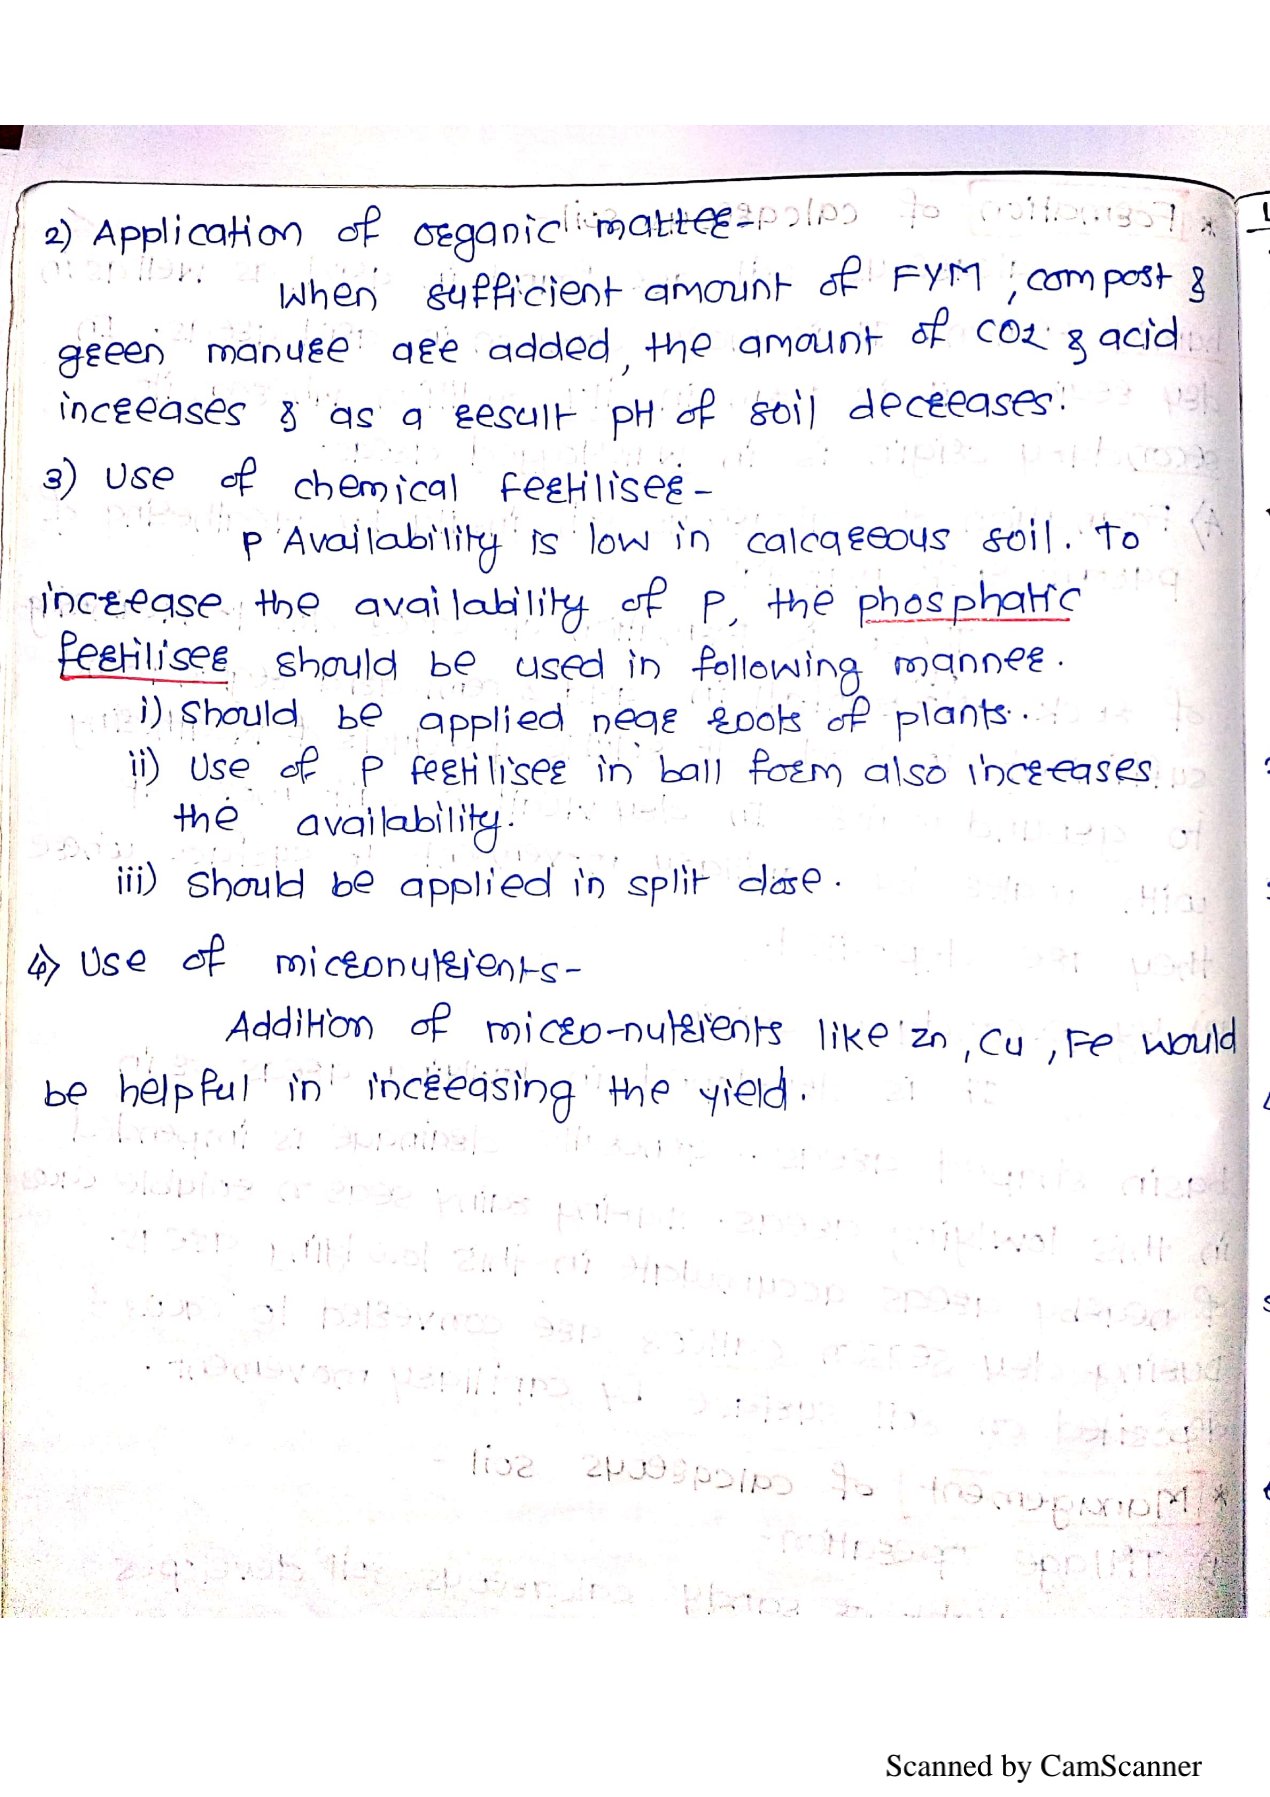 2) Application of organic matter-
When sufficient amount of FYM, compost &
green manure are added, the amount of CO2 & acid
increases & as a result pH of soil decreases.
3) Use of chemical fertiliser-
P Availability is low in calcareous soil. To
increase the availability of P, the phosphatic
fertiliser should be used in following manner.
i) Should be applied near roots of plants.
ii) Use of P fertiliser in ball form also increases
the availability.
iii) Should be applied in split dose.
4) Use of micronutrients-
Addition of micro-nutrients like Zn, Cu, Fe would
be helpful in increasing the yield.
Scanned by CamScanner